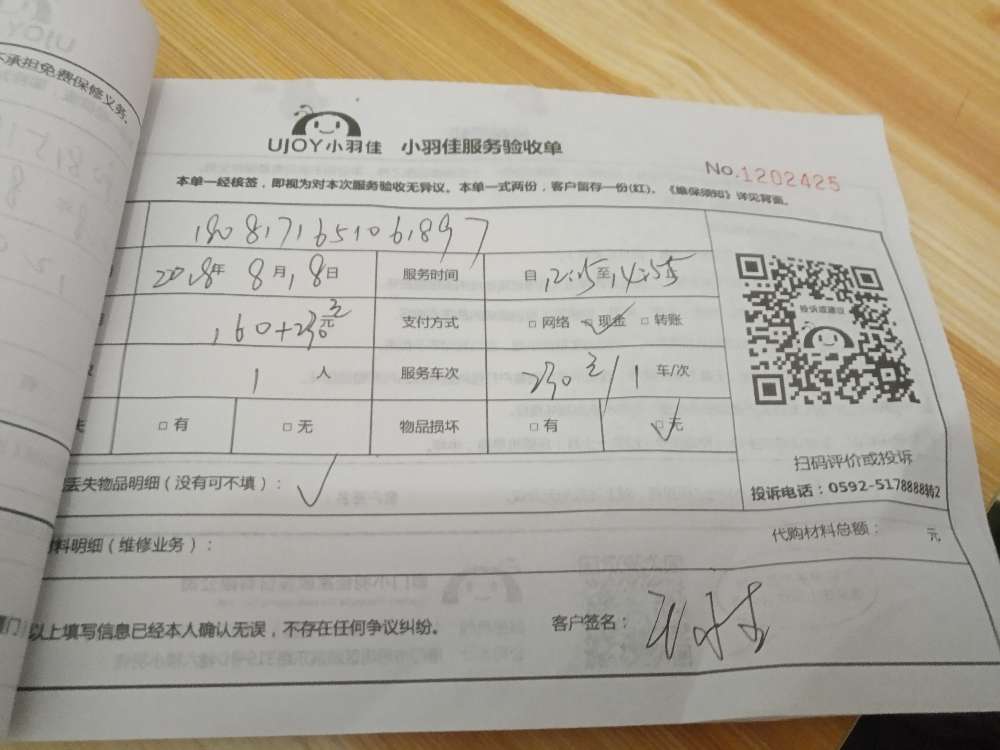 不承担免费保修义务、
UJOY小羽佳 小羽佳服务验收单
No.1202425
本单一经核签，即视为对本次服务验收无异议。本单一式两份，客户留存一份(红)。《维保须知》详见背面。
180817165106897
2018年8月18日 服务时间 自12:15至14:55
160+230元 支付方式 □网络 □现金 □转账
1人 服务车次 230元/1车/次
□有 □无 物品损坏 □有 □无
投诉或建议
丢失物品明细（没有可不填）：
扫码评价或投诉
投诉电话：0592-5178888转2
料明细（维修业务）： 代购材料总额： 元
以上填写信息已经本人确认无误，不存在任何争议纠纷。 客户签名：